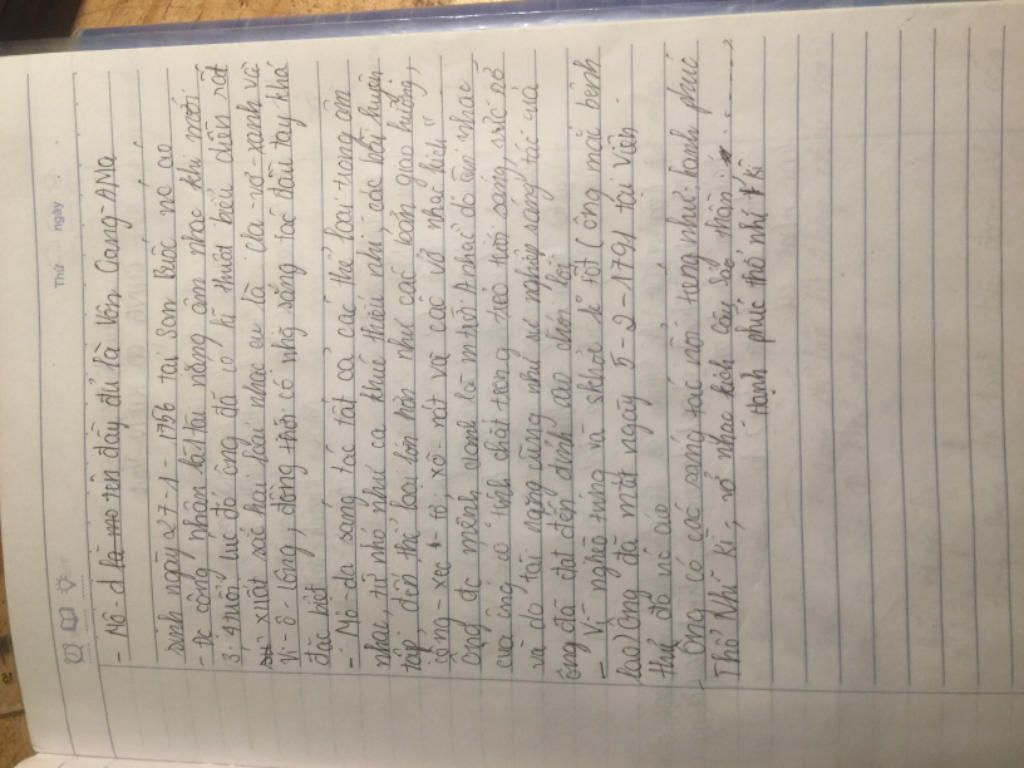 Thứ ngày
- Mô-d là mo tên đầy đủ là Vôn Gang-AMa
sinh ngày 27-1-1756 tại San buốc nc áo
- Đc công nhận là tài năng âm nhạc khi mới
3-4 tuổi lúc đó ông đã có kĩ thuật biểu diễn rất
xuất xắc hai loại nhạc cụ là cla-vơ-xanh và
Vi-ô-lông, đồng thời có nhg sáng tác đầu tay khá
đặc biệt
- Mô-da sáng tác tất cả các thể loại trong âm
nhạc, từ nhỏ như ca khúc thiếu nhi, các bài luyện
tập, đến thể loại lớn hơn như các bản giao hưởng,
công-xéc-tô, xô-nát và các vở nhạc kịch "
Ông đc mệnh danh là mặt trời Anhạc do âm nhạc
của ông có tính chất trong trẻo tươi sáng, rực rỡ
và do tài năng cũng như sự nghiệp sáng tác của
ông đã đạt đến đỉnh cao chói lọi
- Vì nghèo túng và skhoẻ k tốt (ông mắc bệnh
lao) Ông đã mất ngày 5-2-1791 tại viên
thủ đô nc áo
Ông có các sáng tác nổi tiếng như: hạnh phúc
Thổ Nhĩ kì, vở nhạc kịch Cây Sáo thần
Hạnh phúc thổ nhĩ kì